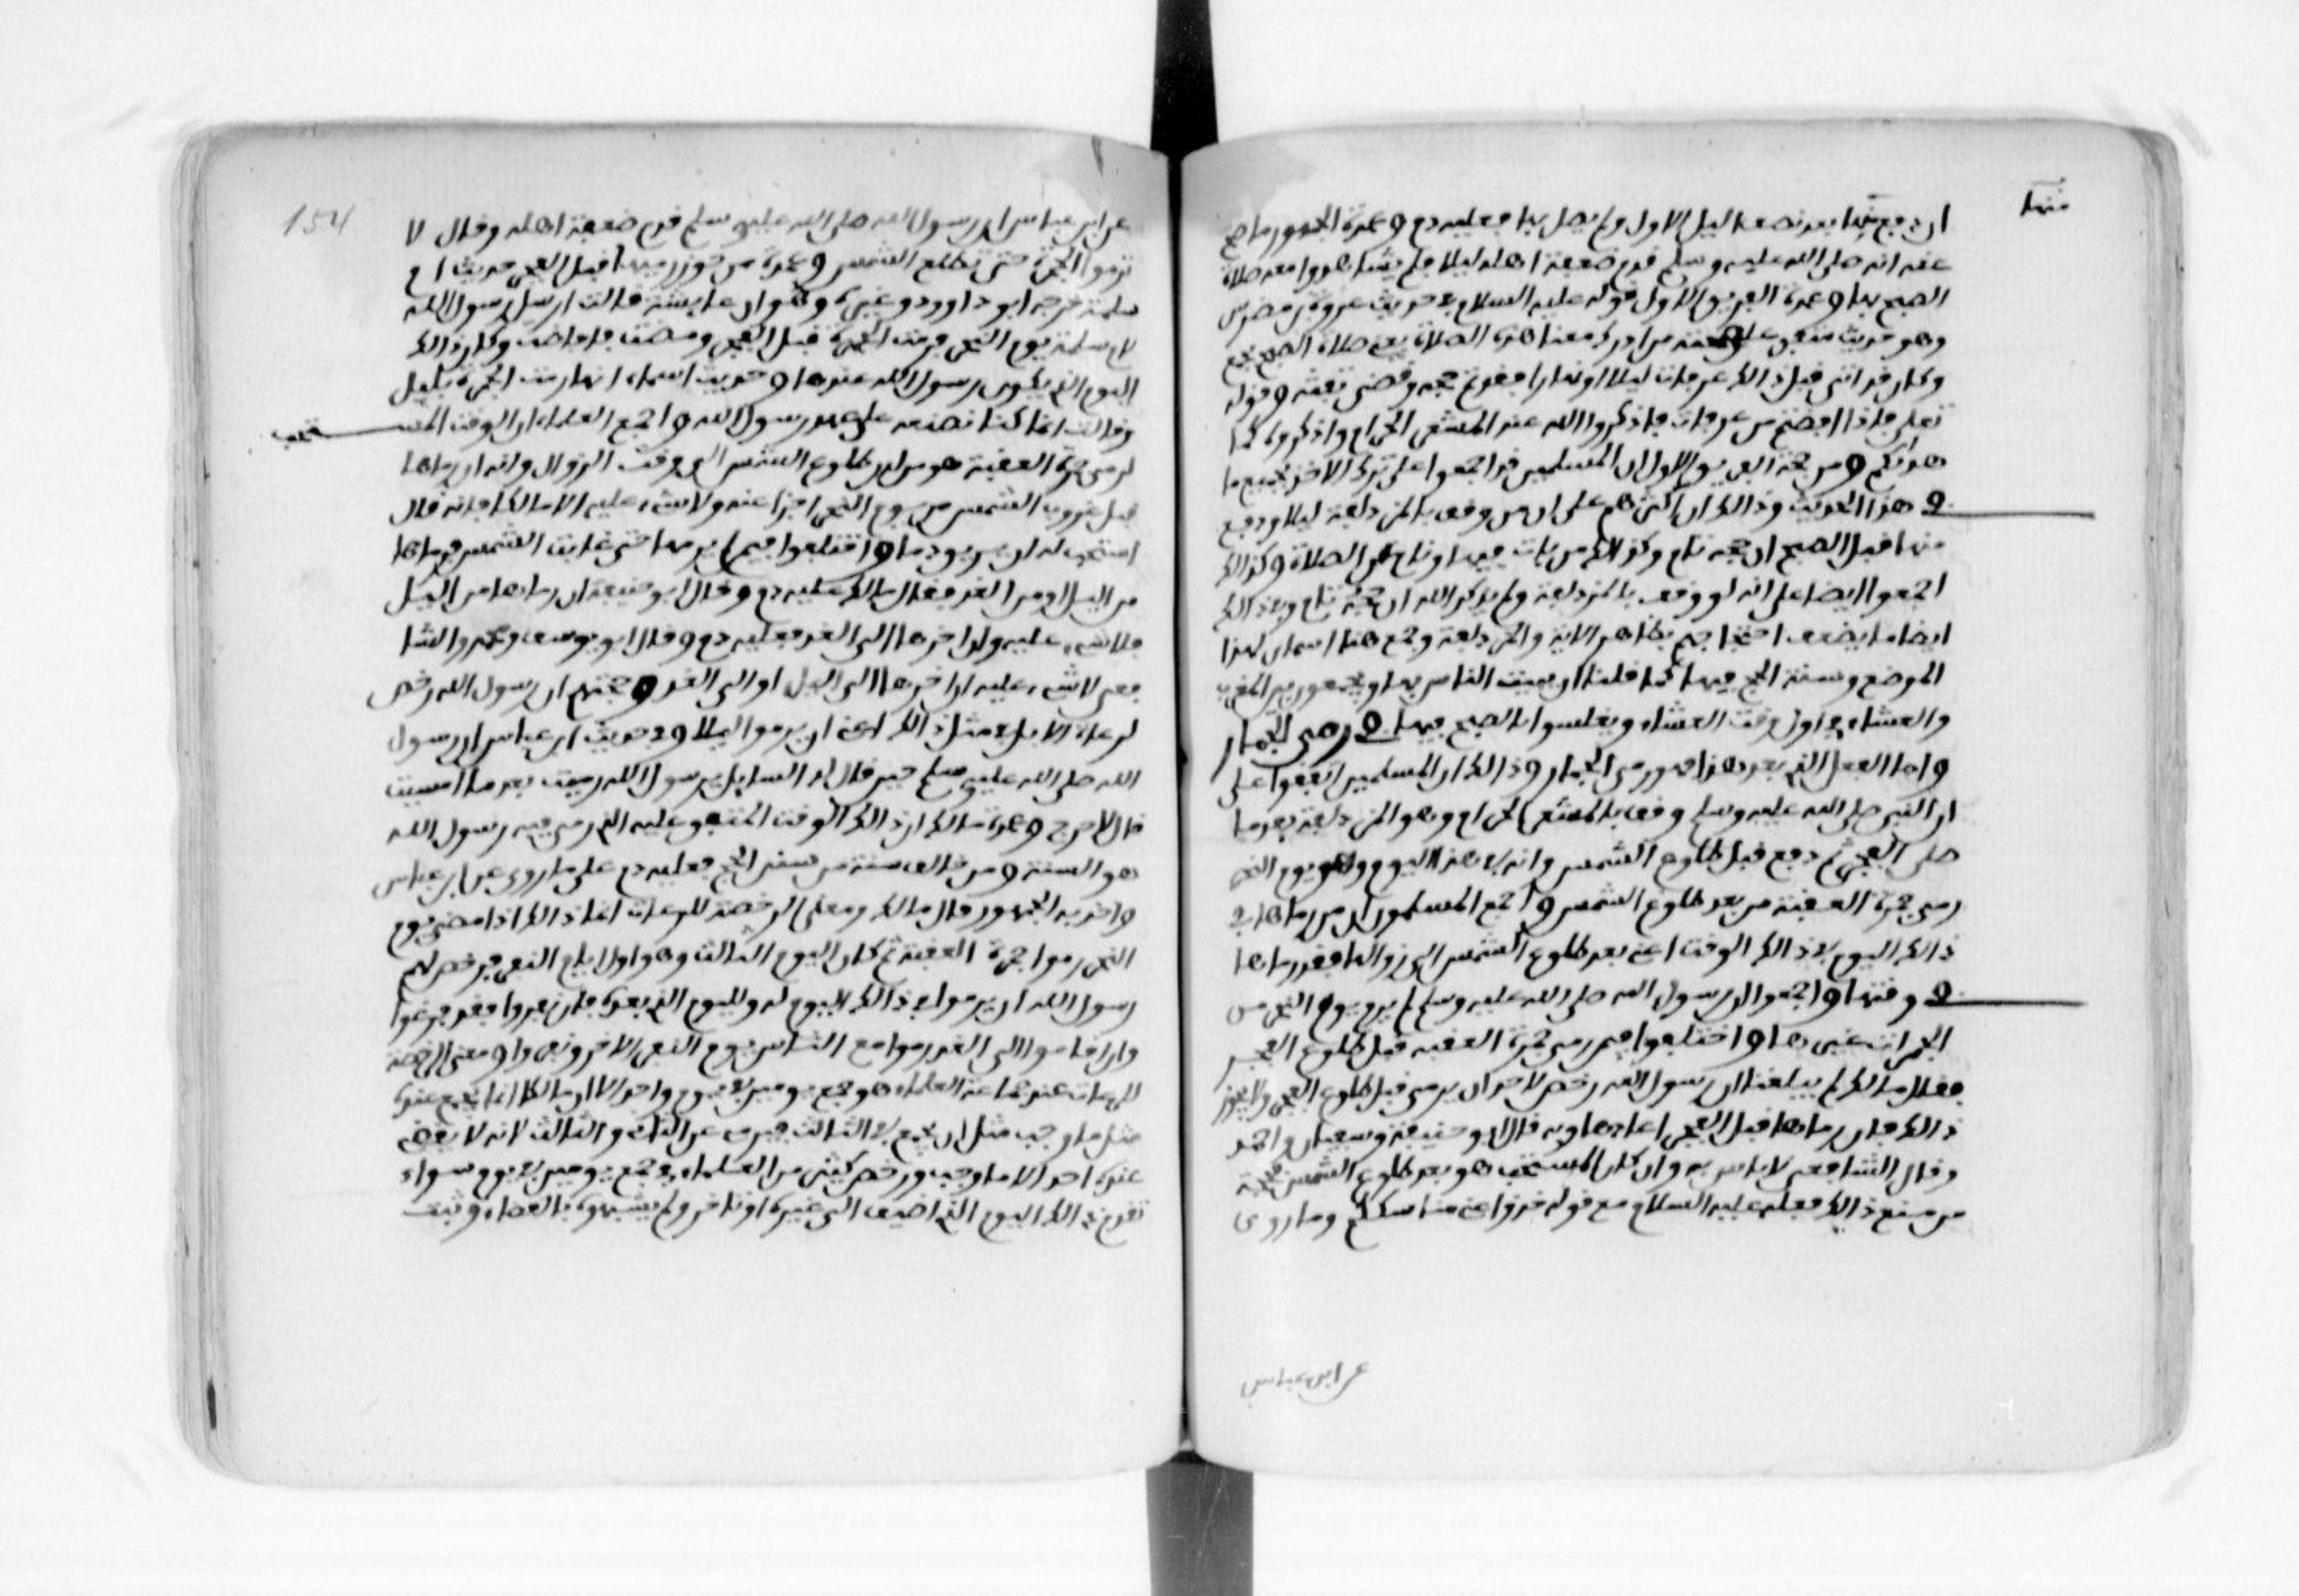 منها
ان دفع منها بعد نصف اليل الاول ولم يصل بها فعليه دم وعمدة الجمهور ما صح
عنه انه صلى الله عليه وسلم قدم ضعفة اهله ليلا فلم يشاهدوا معه صلاة
الصبح بها وعمدة الفريق الاول قوله عليه السلام في حديث عروة بن مضرس
وهو حديث متفق على صحته من ادرك معنا هذه الصلاة يعني صلاة الصبح بجمع
وكان قد اتى قبل ذالك عرفات ليلا او نهارا فقد تم حجه وقضى تفثه وقوله
تعلى فاذا افضتم من عرفات فاذكروا الله عند المشعر الحرام واذكروه كما
هداكم ومن حجة الفريق الاول ان المسلمين قد اجمعوا على ترك الاخذ بجميع ما
في هذا الحديث وذالك ان اكثرهم على ان من وقف بالمزدلفة ليلا ودفع
منها قبل الصبح ان حجه تام وكذالك من بات فيها ونام عن الصلاة وكذالك
اجمعوا ايضا على انه لو وقف بالمزدلفة ولم يذكر الله ان حجه تام وفي ذالك
ايضا ما يضعف احتجاجهم بظاهر الاية والمزدلفة وجمع هما اسمان لهذا
الموضع وسنة الحج فيها كما قلنا ان يبيت الناس بها ويجمعون بين المغرب
والعشاء في اول وقت العشاء ويغلسوا بالصبح فيها في رمي الجمار
واما الفعل الذي بعد هذا فهو رمي الجمار وذالك ان المسلمين اتفقوا على
ان النبي صلى الله عليه وسلم وقف بالمشعر الحرام وهو المزدلفة بعد ما
صلى الفجر ثم دفع قبل طلوع الشمس وانه في هذا اليوم وهو يوم النحر
رمى جمرة العقبة من بعد طلوع الشمس واجمع المسلمون ان من رماها في
ذالك اليوم في ذالك الوقت اعني بعد طلوع الشمس الى زوالها فقد رماها
في وقتها واجمعوا ان رسول الله صلى الله عليه وسلم لم يرم يوم النحر من
الجمرات غيرها واختلفوا فيمن رمى جمرة العقبة قبل طلوع الفجر
فقال مالك لم يبلغنا ان رسول الله رخص لاحد ان يرمي قبل طلوع الفجر ولا يجوز
ذالك فان رماها قبل الفجر اعادها وبه قال ابو حنيفة وسفيان واحمد
وقال الشافعي لا باس به وان كان المستحب هو بعد طلوع الشمس فحجة
من منع ذالك فعله عليه السلام مع قوله خذوا عني مناسككم وما روي
عن ابن عباس
154
عن ابن عباس ان رسول الله صلى الله عليه وسلم قدم ضعفة اهله وقال لا
ترموا الجمرة حتى تطلع الشمس وعمدة من جوز رميها قبل الفجر حديث ام
سلمة خرجه ابو داوود وغيره وهو ان عايشة قالت ارسل رسول الله
لام سلمة يوم النحر فرمت الجمرة قبل الفجر ومضت فافاضت وكان ذالك
اليوم الذي يكون رسول الله عندها وحديث اسماء انها رمت الجمرة بليل
وقالت انا كنا نصنعه على عهد رسول الله واجمع العلماء ان الوقت المستحب
لرمي جمرة العقبة هو من لدن طلوع الشمس الى وقت الزوال وانه ان رماها
قبل غروب الشمس من يوم النحر اجزا عنه ولا شيء عليه الا مالكا فانه قال
استحب له ان يريق دما واختلفوا فيمن لم يرمها حتى غابت الشمس فرماها
من اليل او من الغد فقال مالك عليه دم وقال ابو حنيفة ان رماها من اليل
فلا شيء عليه وان اخرها الى الغد فعليه دم وقال ابو يوسف ومحمد والشا
فعي لا شيء عليه ان اخرها الى اليل او الى الغد وحجتهم ان رسول الله رخص
لرعاة الابل في مثل ذالك اعني ان يرموا ليلا وفي حديث ابن عباس ان رسول
الله صلى الله عليه وسلم حين قال له السايل يرسول الله رميت بعد ما امسيت
قال لا حرج وعمدة مالك ان ذالك الوقت المتفق عليه الذي رمى فيه رسول الله
هو السنة ومن خالف سنة من سنن الحج فعليه دم على ما روي عن ابن عباس
واخذ به الجمهور وقال مالك ومعنى الرخصة للرعات انما ذالك اذا مضى يوم
النحر رموا جمرة العقبة ثم كان اليوم الثالث وهو اول ايام النفر فرخص لهم
رسول الله ان يرموا في ذالك اليوم له ولليوم الذي بعده فان نفروا فقد فرغوا
وان اقاموا الى الغد رموا مع الناس يوم النفر الاخر ونفروا ومعنى الرخصة
للرعات عند جماعة العلماء هو جمع يومين في يوم واحد الا ان مالكا انما يجمع عنده
مثل ما وجب مثل ان يجمع في الثالث فيرمي عن الثاني والثالث لانه لا يقضى
عنده احد الا ما وجب ورخص كثير من العلماء في جمع يومين في يوم سواء
تقدم ذالك اليوم الذي اضيف الى غيره او تاخر ولم يشبهوه بالقضاء وثبت